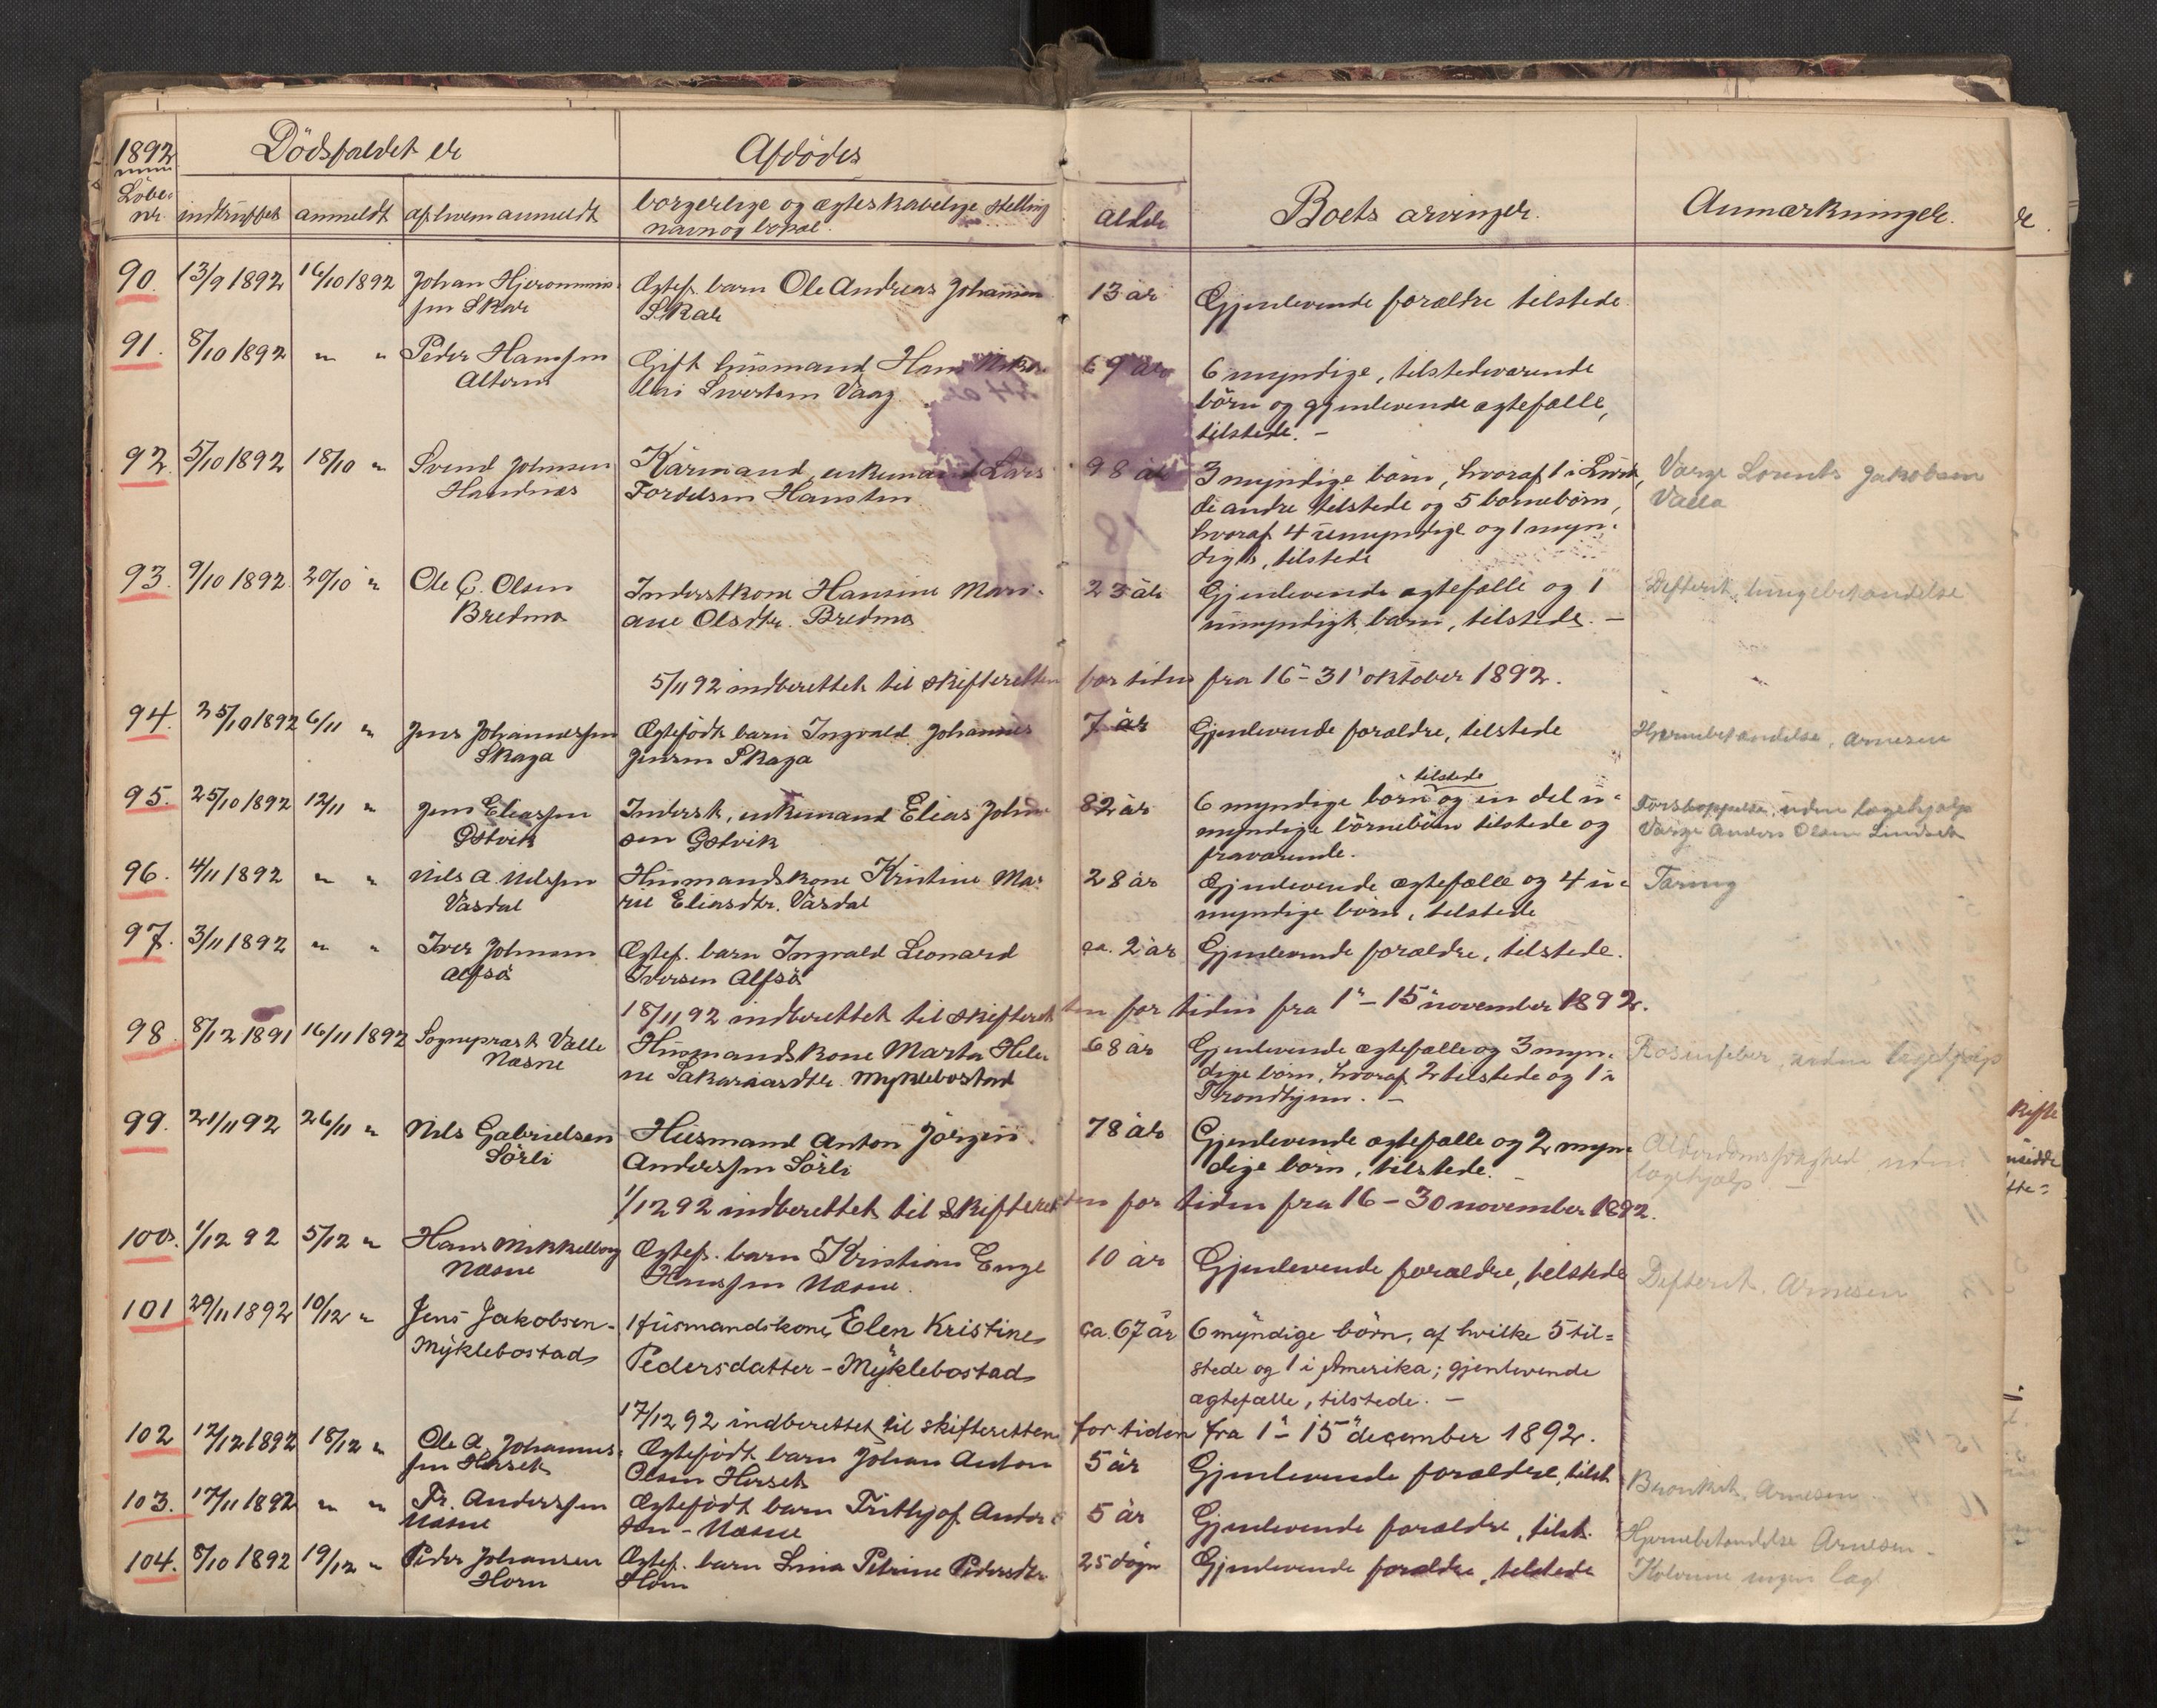 1892
Dödsfaldet er
Afdödes
Löbe-
nr.
indtruffet
anmeldt
af hvem anmeldt
borgerlige og ægteskabelige stilling
navn og bopæl.
alder
Boets arvinger.
Anmærkninger.
90. 13/9 1892 16/10 1892 Johan Hjeronimus- Ægtef. barn Ole Andreas Johansen 13 år Gjenlevende forældre tilstede.
sen Skar Skar
91. 8/10 1892 " " Peder Hanssen Gift husmand Hans 69 år 6 myndige, tilstedeværende
Sivertsen Vaag. börn og gjenlevende ægtefælle,
tilstede. –
92. 5/10 1892 18/10 " Svend Johnsen Kårmand, enkemand Lars 98 år 3 myndige börn, hvoraf 1 i Værge Lorents Jakobsen
Handnæs Tordelsen Hansten de andre tilstede og 5 börnebörn, Valla
hvoraf 4 umyndige og 1 myn-
digt, tilstede
93. 9/10 1892 20/10 " Ole C. Olsen Inderstkone Hansine Mari- 23 år Gjenlevende ægtefælle og 1 Difterit, lungebetændelse
Bredmo ane Olsdtr. Bredmo umyndigt barn, tilstede. –
5/11 92 indberettet til skifteretten for tiden fra 16 – 31 oktober 1892.
94. 25/10 1892 6/11 " Jens Johannessen Ægtefödt barn Ingvald Johannes 7 år Gjenlevende forældre, tilstede Hjernebetændelse, Arnesen
Skaga Jensen Skaga
95. 25/10 1892 12/11 " Jens Eliassen Inderst, enkemand Elias John- 82 år 6 myndige börn tilstede og en del u- Forstoppelse, uden lægehjælp
Östvik sen Östvik myndige börnebörn tilstede og Værge Anders Olsen Lindset
fraværende.
96. 4/11 1892 " " Nils A. Nilssen Husmandskone Kristine Ma- 28 år Gjenlevende ægtefælle og 4 u- Tæring
Våsdal rie Eliasdtr. Våsdal myndige börn, tilstede
97. 3/11 1892 " " Iver Johnsen Ægtef. barn Ingvald Leonard ca. 2 år Gjenlevende forældre, tilstede.
Alfsö Iversen Alfsö
18/11 92 indberettet til skifteretten for tiden fra 1 – 15 november 1892.
98. 8/12 1891 16/11 1892 Sognepræst Valle Husmandskone Marta Hele- 68 år Gjenlevende ægtefælle og 3 myn- Rosenfeber, uden lægehjælp
Næsne ne Sakariasdtr. Myklebostad dige börn, hvoraf 2 tilstede og 1 i
Trondhjem. –
99. 21/11 92 26/11 " Nils Gabrielsen Husmand Anton Jörgen 78 år Gjenlevende ægtefælle og 2 myn- Alderdomssvaghed, uden
Sörli Anderssen Sörli dige börn, tilstede. – lægehjælp –
1/12 92 indberettet til skifteretten for tiden fra 16 – 30 november 1892.
100. 1/12 92 5/12 " Hans Mikkelborg Ægtef. barn Kristian Enge 10 år Gjenlevende forældre, tilstede Difterit. Arnesen
Næsne Hanssen Næsne.
101 29/11 1892 10/12 " Jens Jakobsen- Husmandskone Elen Kristine ca. 67 år 6 myndige börn, af hvilke 5 til=
Myklebostad Pedersdatter – Myklebostad stede og 1 i Amerika; gjenlevende
ægtefælle, tilstede. –
17/12 92 indberettet til skifteretten for tiden fra 1 – 15 december 1892.
102 12/12 1892 18/12 " Ole A. Johannes- Ægtefödt barn Johan Anton 5 år Gjenlevende forældre, tilst. Bronkit, Arnesen
sen Herset Olsen Herset
103. 17/11 1892 " " Fr. Anderssen Ægtefödt barn Frithjof Ander- 5 år Gjenlevende forældre, tilst. Hjernebetændelse Arnesen –
Næsne sen – Næsne
104. 8/10 1892 19/12 " Peder Johansen Ægtef. barn Lina Petrine Pedersdtr. 25 dögn Gjenlevende forældre, tilstede ingen
Horn Horn